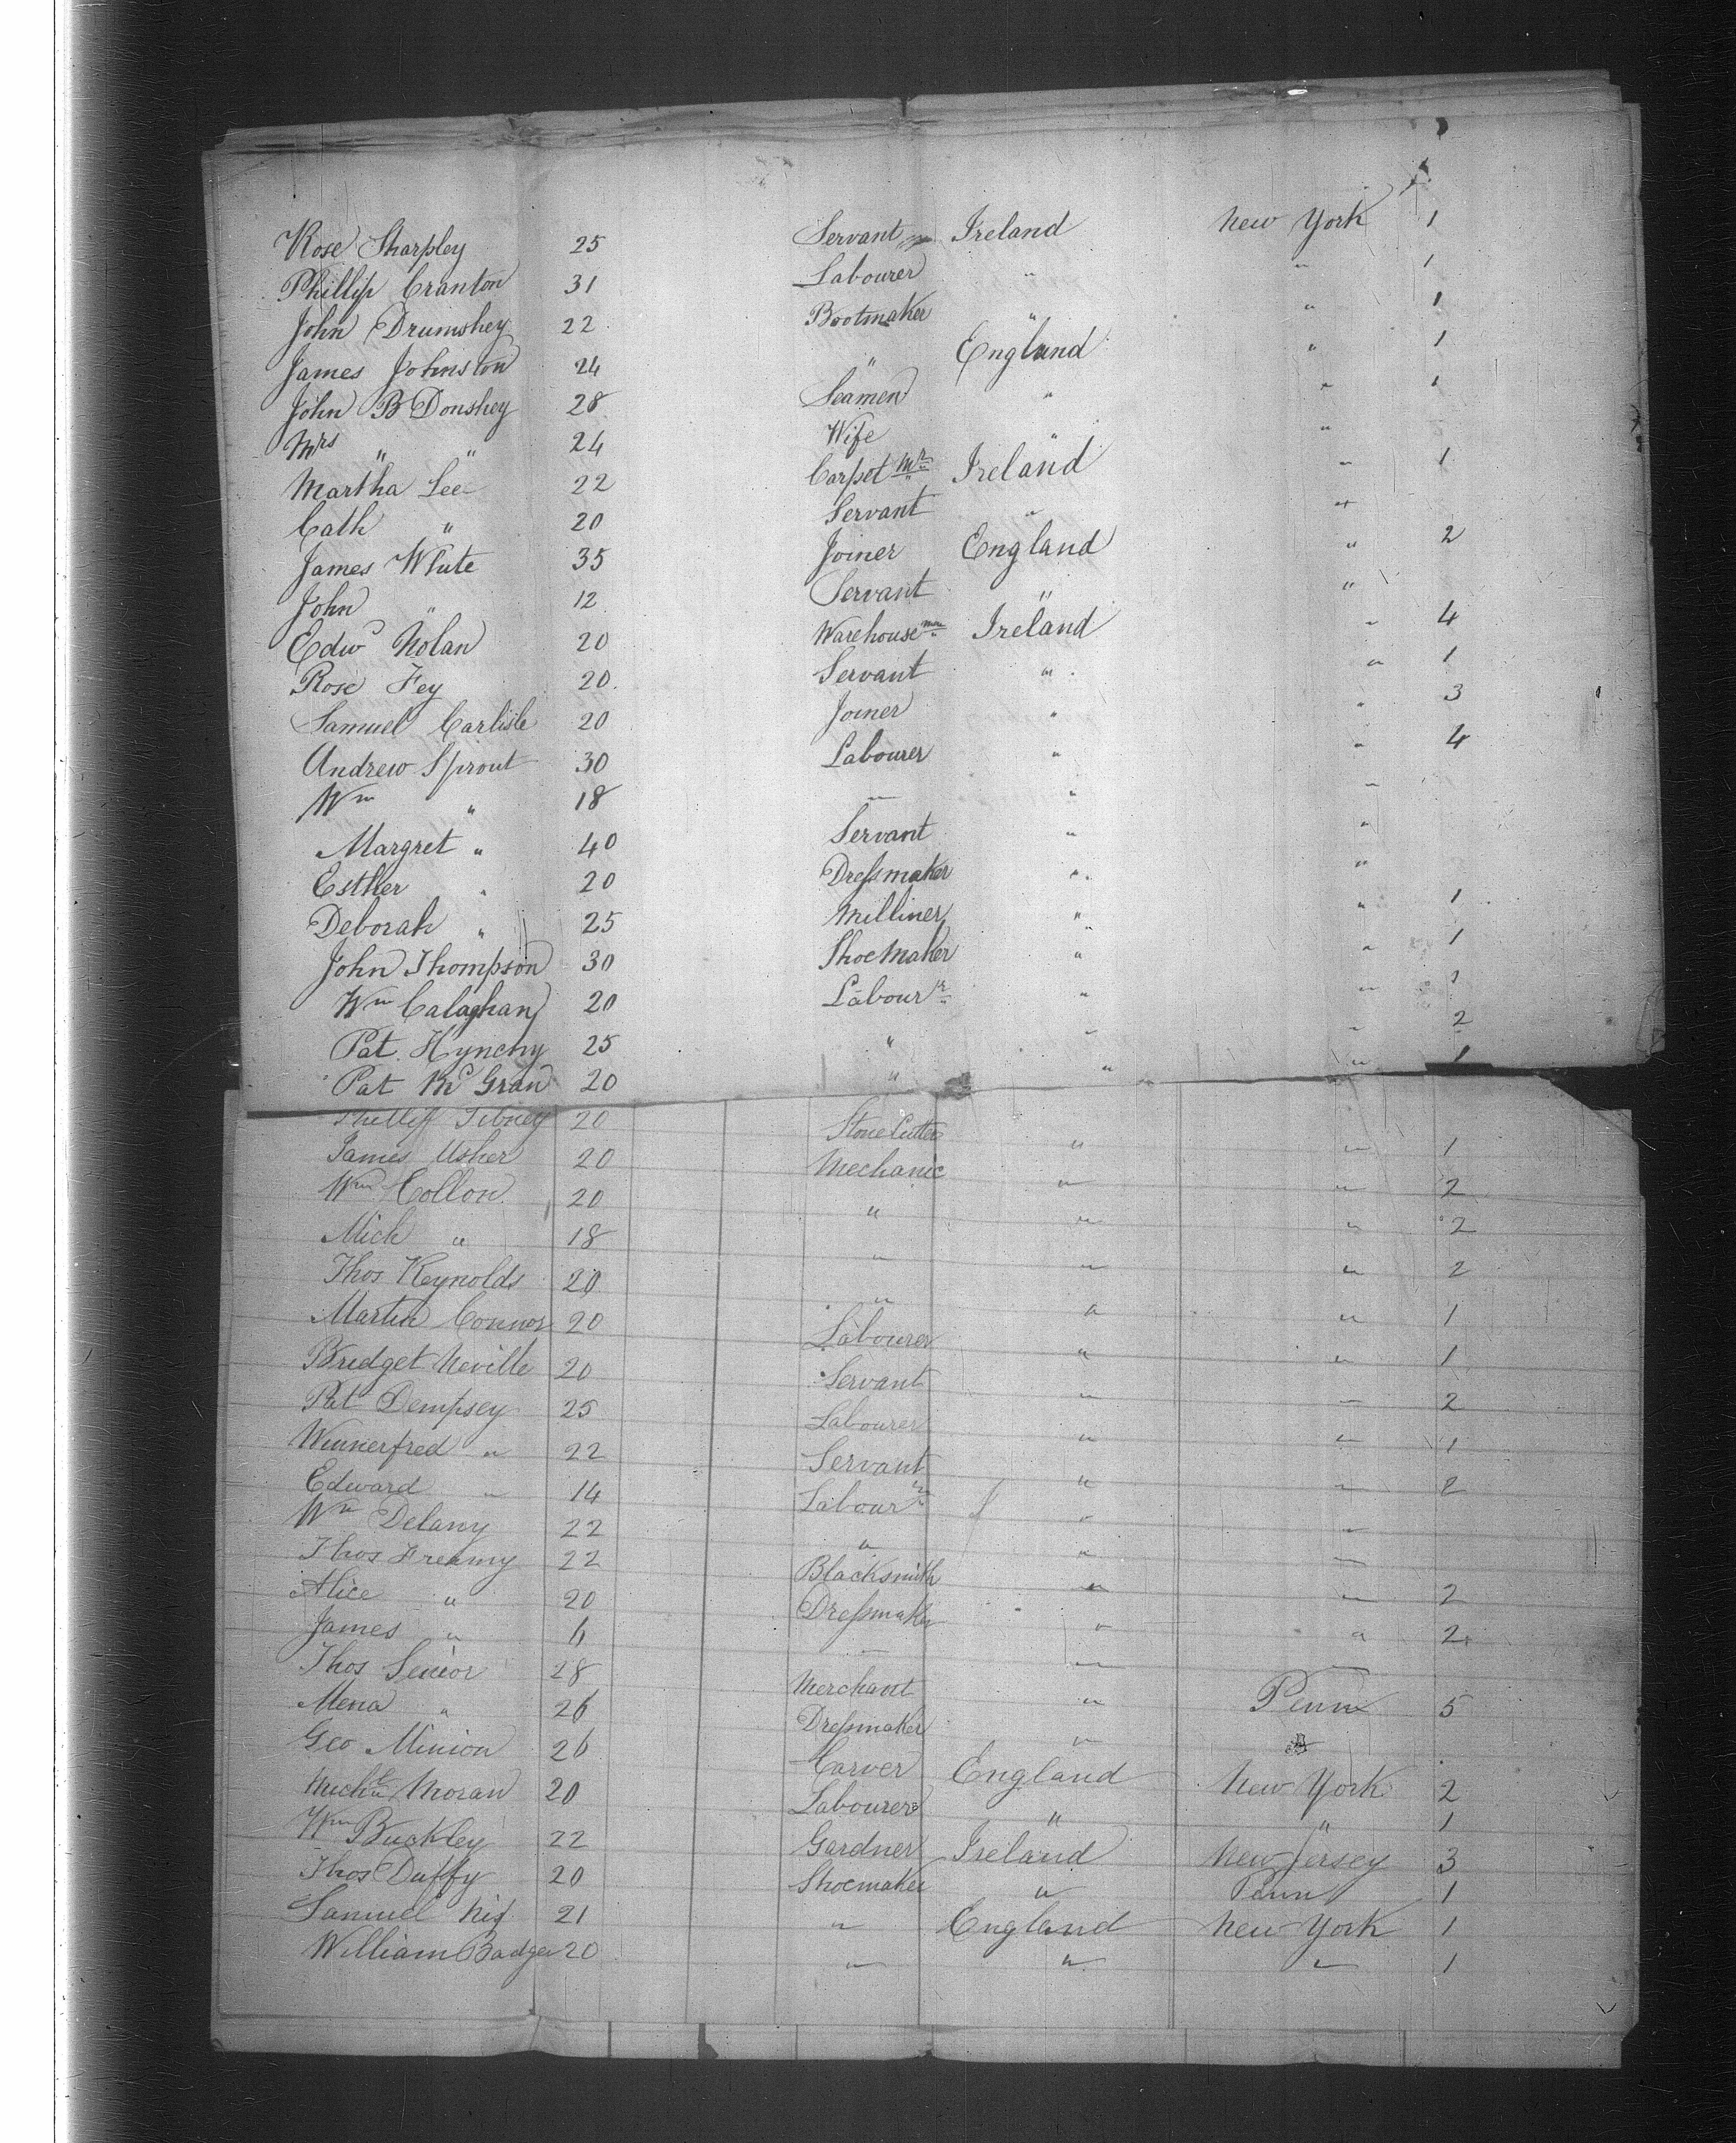 Rose Sharpley 25 Servant Ireland New York 1
Phillip Cranton 31 Labourer " " 1
John Drumshey 22 Bootmaker " " 1
James Johnston 24 " England " 1
John B Donshey 28 Seamen " " 1
Mrs " " 24 Wife " "
Martha Lee 22 Carpet Mr Ireland " 1
Cath " 20 Servant " "
James White 35 Joiner England " 2
John " 12 Servant " "
Edwd Nolan 20 Warehouse man Ireland " 4
Rose Fey 20 Servant " " 1
Samuel Carlisle 20 Joiner " " 3
Andrew Sprout 30 Labourer " " 4
Wm " 18 — " "
Margret " 40 Servant " "
Esther " 20 Dressmaker " "
Deborah " 25 Milliner " " 1
John Thompson 30 Shoemaker " " 1
Wm Calaghan 20 Labourr " " 1
Pat Hynchy 25 " " " 2
Pat McGran 20 " " " 1
Phillip Tibney 20 Stone Cutter " " 1
James Usher 20 Mechanic " " 2
Wm Collon 20 " " " 2
Mich " 18 " " " 2
Thos Reynolds 20 " " " 1
Martin Connor 20 Labourer " " 1
Bridget Neville 20 Servant " " 2
Pat Dempsey 25 Labourer " " 1
Winnerfred " 22 Servant " " 2
Edward " 14 Labourr " "
Wm Delany 22 " " "
Thos 22 Blacksmith " " 2
Alice " 20 Dressmaker " " 2
James " — "
Thos Senior 28 Merchant " Penn 5
Mena " 26 Dressmaker "
Geo Minion 26 Carver England New York 2
Michl Moran 20 Labourer " " 1
Wm Buckley 22 Gardner Ireland New Jersey 3
Thos Duffy 20 Shoemaker " Penn 1
Samuel Nix 21 " England New York 1
William Badger 20 " " " 1